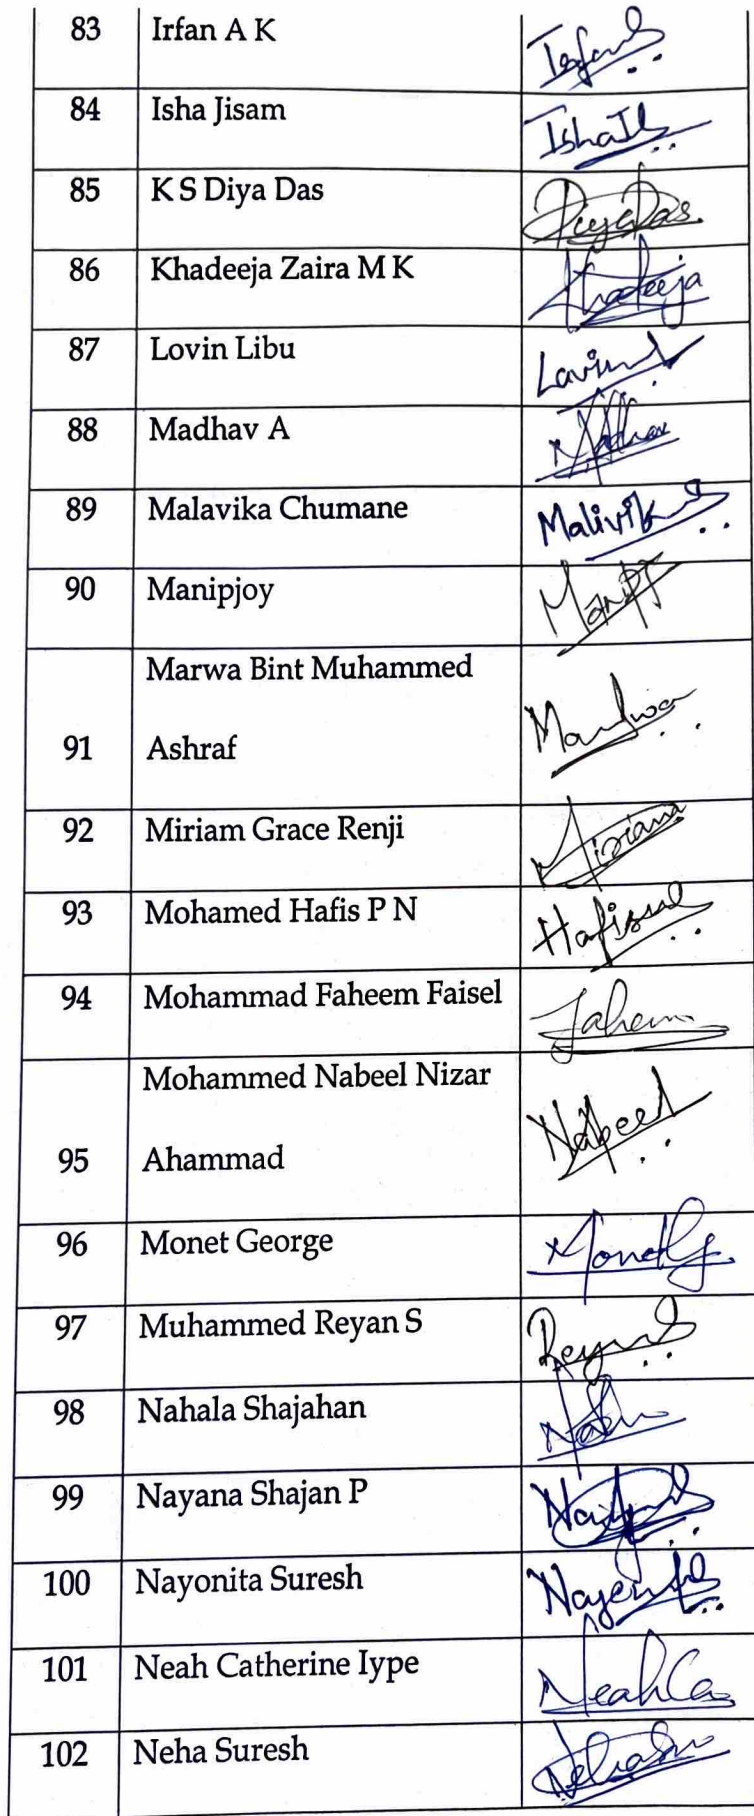 83 Irfan A K Irfan
84 Isha Jisam Isha
85 K S Diya Das DiyaDas.
86 Khadeeja Zaira M K Khadeeja
87 Lovin Libu Lovin
88 Madhav A Madhav
89 Malavika Chumane Malivik
90 Manipjoy Manip
Marwa Bint Muhammed
91 Ashraf Marwa
92 Miriam Grace Renji
93 Mohamed Hafis P N Hafis
94 Mohammad Faheem Faisel Fahem
Mohammed Nabeel Nizar
95 Ahammad Nabeel
96 Monet George Monet G
97 Muhammed Reyan S Reyan
98 Nahala Shajahan
99 Nayana Shajan P
100 Nayonita Suresh
101 Neah Catherine Iype Neah Ca
102 Neha Suresh Neha